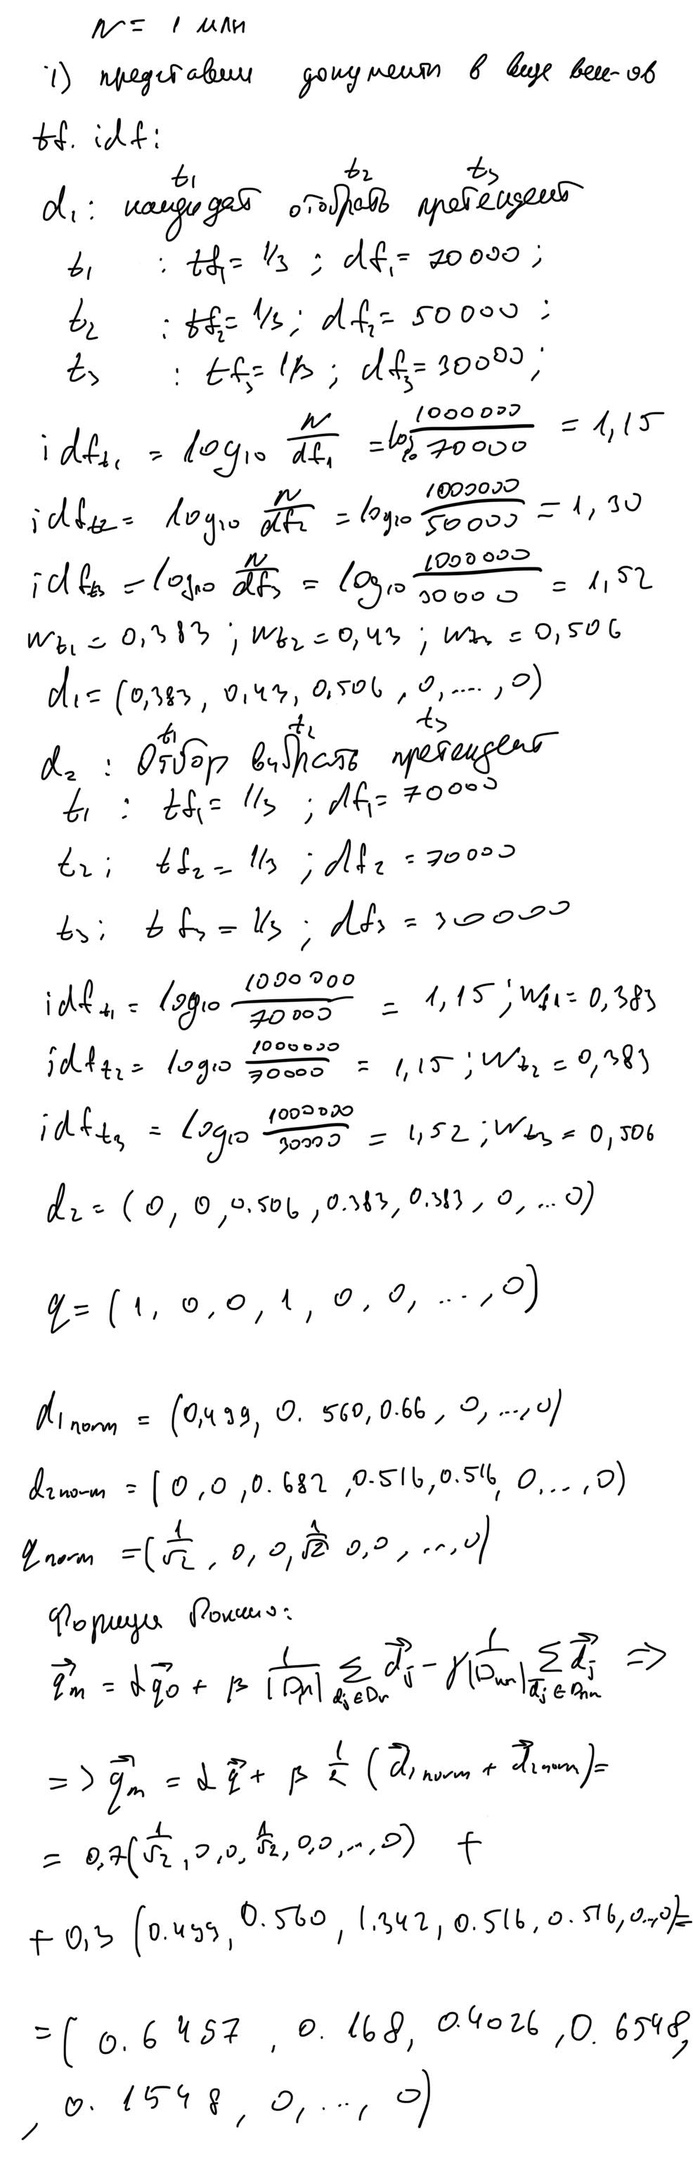 N = 1 млн
1) представим документы в виде век-ов
tf. idf:
t₁ t₂ t₃
d₁: кандидат отобрать претендент
t₁ : tf₁= 1/3 ; df₁= 70000;
t₂ : tf₂= 1/3; df₂= 50000;
t₃ : tf₃= 1/3; df₃= 30000;
idf_t₁ = log₁₀ N/df₁ = log₁₀ 1000000/70000 = 1,15
idf_t₂ = log₁₀ N/df₂ = log₁₀ 1000000/50000 = 1,30
idf_t₃ = log₁₀ N/df₃ = log₁₀ 1000000/30000 = 1,52
w_t₁ = 0,383 ; w_t₂ = 0,43 ; w_t₃ = 0,506
d₁= (0,383, 0,43, 0,506, 0, ...., 0)
t₁ t₂ t₃
d₂ : Отбор выбрать претендент
t₁ : tf₁= 1/3 ; df₁= 70000
t₂; tf₂= 1/3 ; df₂ = 70000
t₃; tf₃ = 1/3 ; df₃ = 30000
idf_t₁ = log₁₀ 1000000/70000 = 1,15 ; w_t₁ = 0,383
idf_t₂ = log₁₀ 1000000/70000 = 1,15 ; w_t₂ = 0,383
idf_t₃ = log₁₀ 1000000/30000 = 1,52 ; w_t₃ = 0,506
d₂ = (0, 0, 0.506, 0.383, 0.383, 0, ... 0)
q = (1, 0, 0, 1, 0, 0, ..., 0)
d₁ norm = (0,499, 0.560, 0.66, 0, ..., 0)
d₂ norm = (0, 0, 0.682, 0.516, 0.516, 0, ..., 0)
q norm = (1/√2, 0, 0, 1/√2 0, 0, ..., 0)
Формула Роккио:
q⃗m = αq⃗0 + β 1/|Dr| ∑ dj∈Dr d⃗j - γ 1/|Dnr| ∑ dj∈Dnr d⃗j =>
=> q⃗m = α q⃗ + β 1/2 (d⃗₁ norm + d⃗₂ norm) =
= 0,7(1/√2, 0, 0, 1/√2, 0, 0, ..., 0) +
+ 0,3 (0.499, 0.560, 1.342, 0.516, 0.516, 0..., 0) =
= (0.6457, 0.168, 0.4026, 0.6548,
, 0.1548, 0, ..., 0)